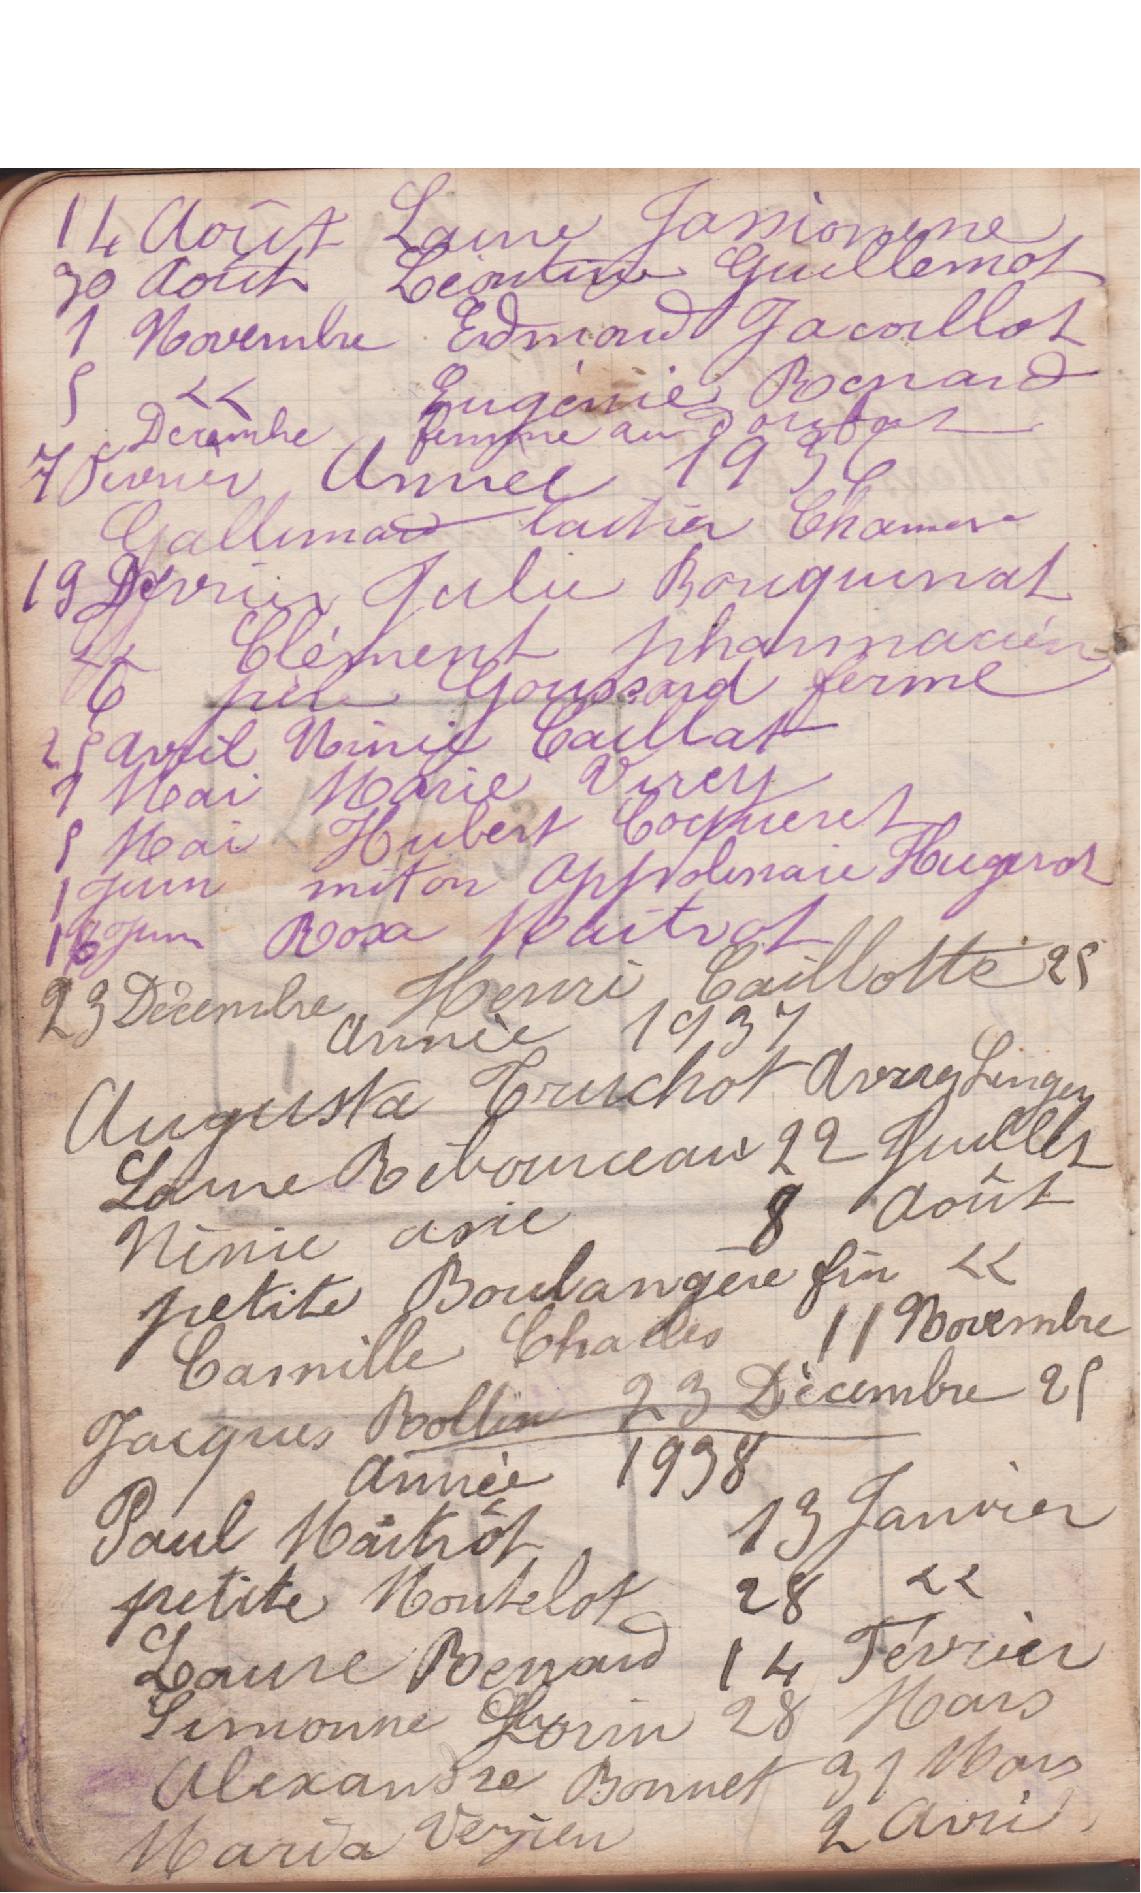 14 Août Laure Jassionene
30 Août Léontine Guillemot
1 Novembre Edmond Jacoillot
5 << Eugénie Renard
Décembre femme au
7 Février Année 1936
Gallimard laitier
19 Février Julie Bouquinat
<< Clément pharmacien
6 père Goussard ferme
25 Avril Ninie Caillat
1 Mai Marie Virey
5 Mai Hubert Coqueret
1 Juin miton Appolinaie Hugerot
16 Juin Rosa Maitrot
23 Décembre Henri Caillotte 25
Année 1937
Augusta Truchot
Laure Ribourceau 22 Juillet
Ninie asie 8 Août
petite Boulangère fin <<
Camille Charles 11 Novembre
Jacques Rollin 23 Décembre 25
Année 1938
Paul Maitrôt 13 Janvier
petite Moutelot 28 <<
Laure Renard 14 Février
Simonne Lorin 28 Mars
Alexandre Bonnet 31 Mars
Maria Verjien 2 Avri